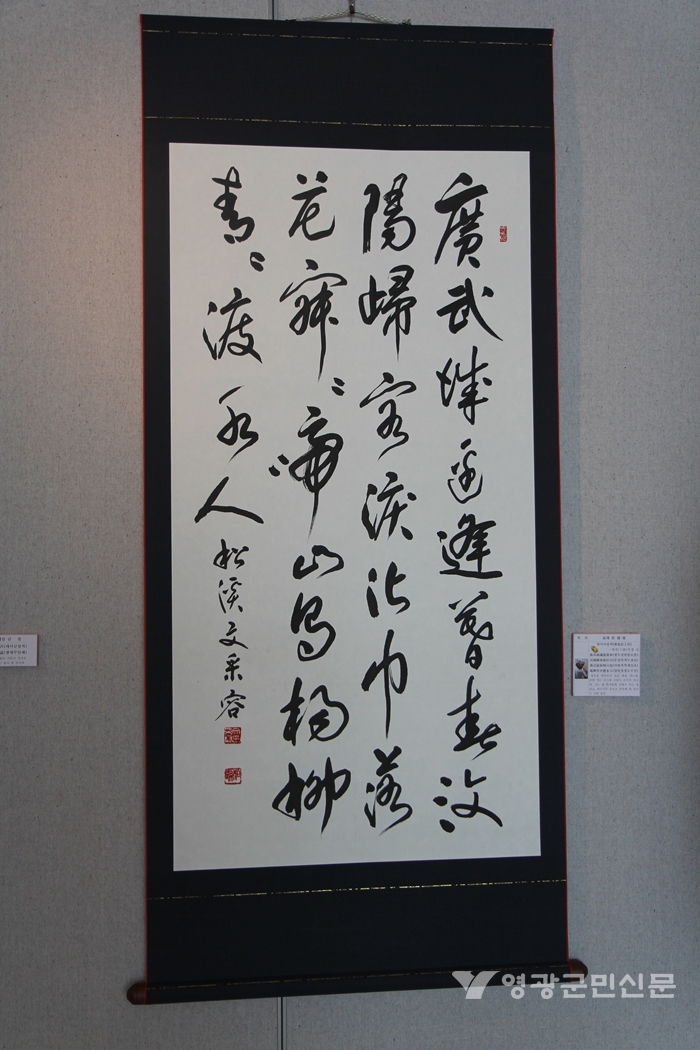 廣武城邊逢暮春汶
陽歸客淚沾巾落
花寂〻啼山鳥楊柳
青〻渡水人 松溪文采容
영광군민신문